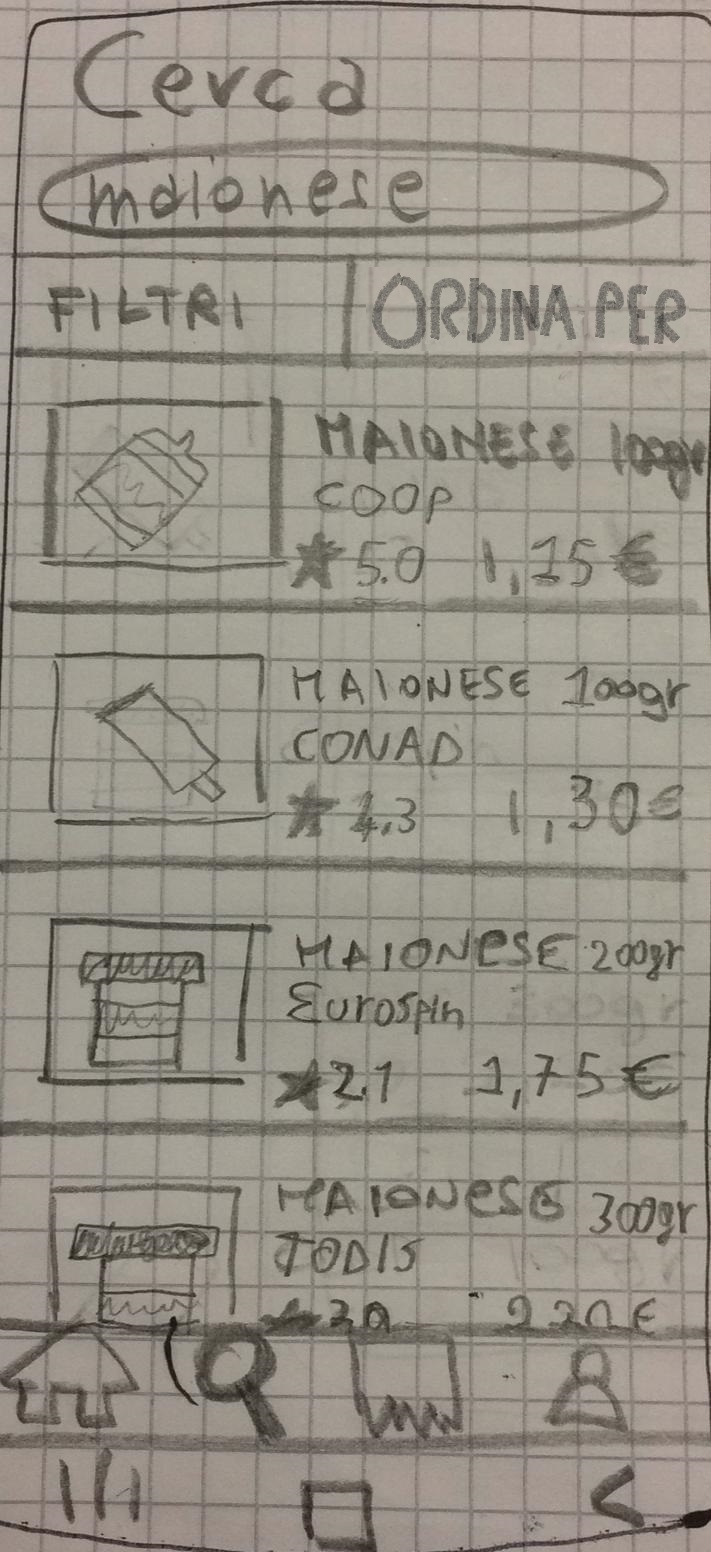 Cerca
maionese
FILTRI ORDINA PER
MAIONESE 100gr
COOP
5.0 1,25 €
MAIONESE 100gr
CONAD
4.3 1,30€
MAIONESE 200gr
Eurospin
2.1 1,75 €
MAIONESE 300gr
TODIS